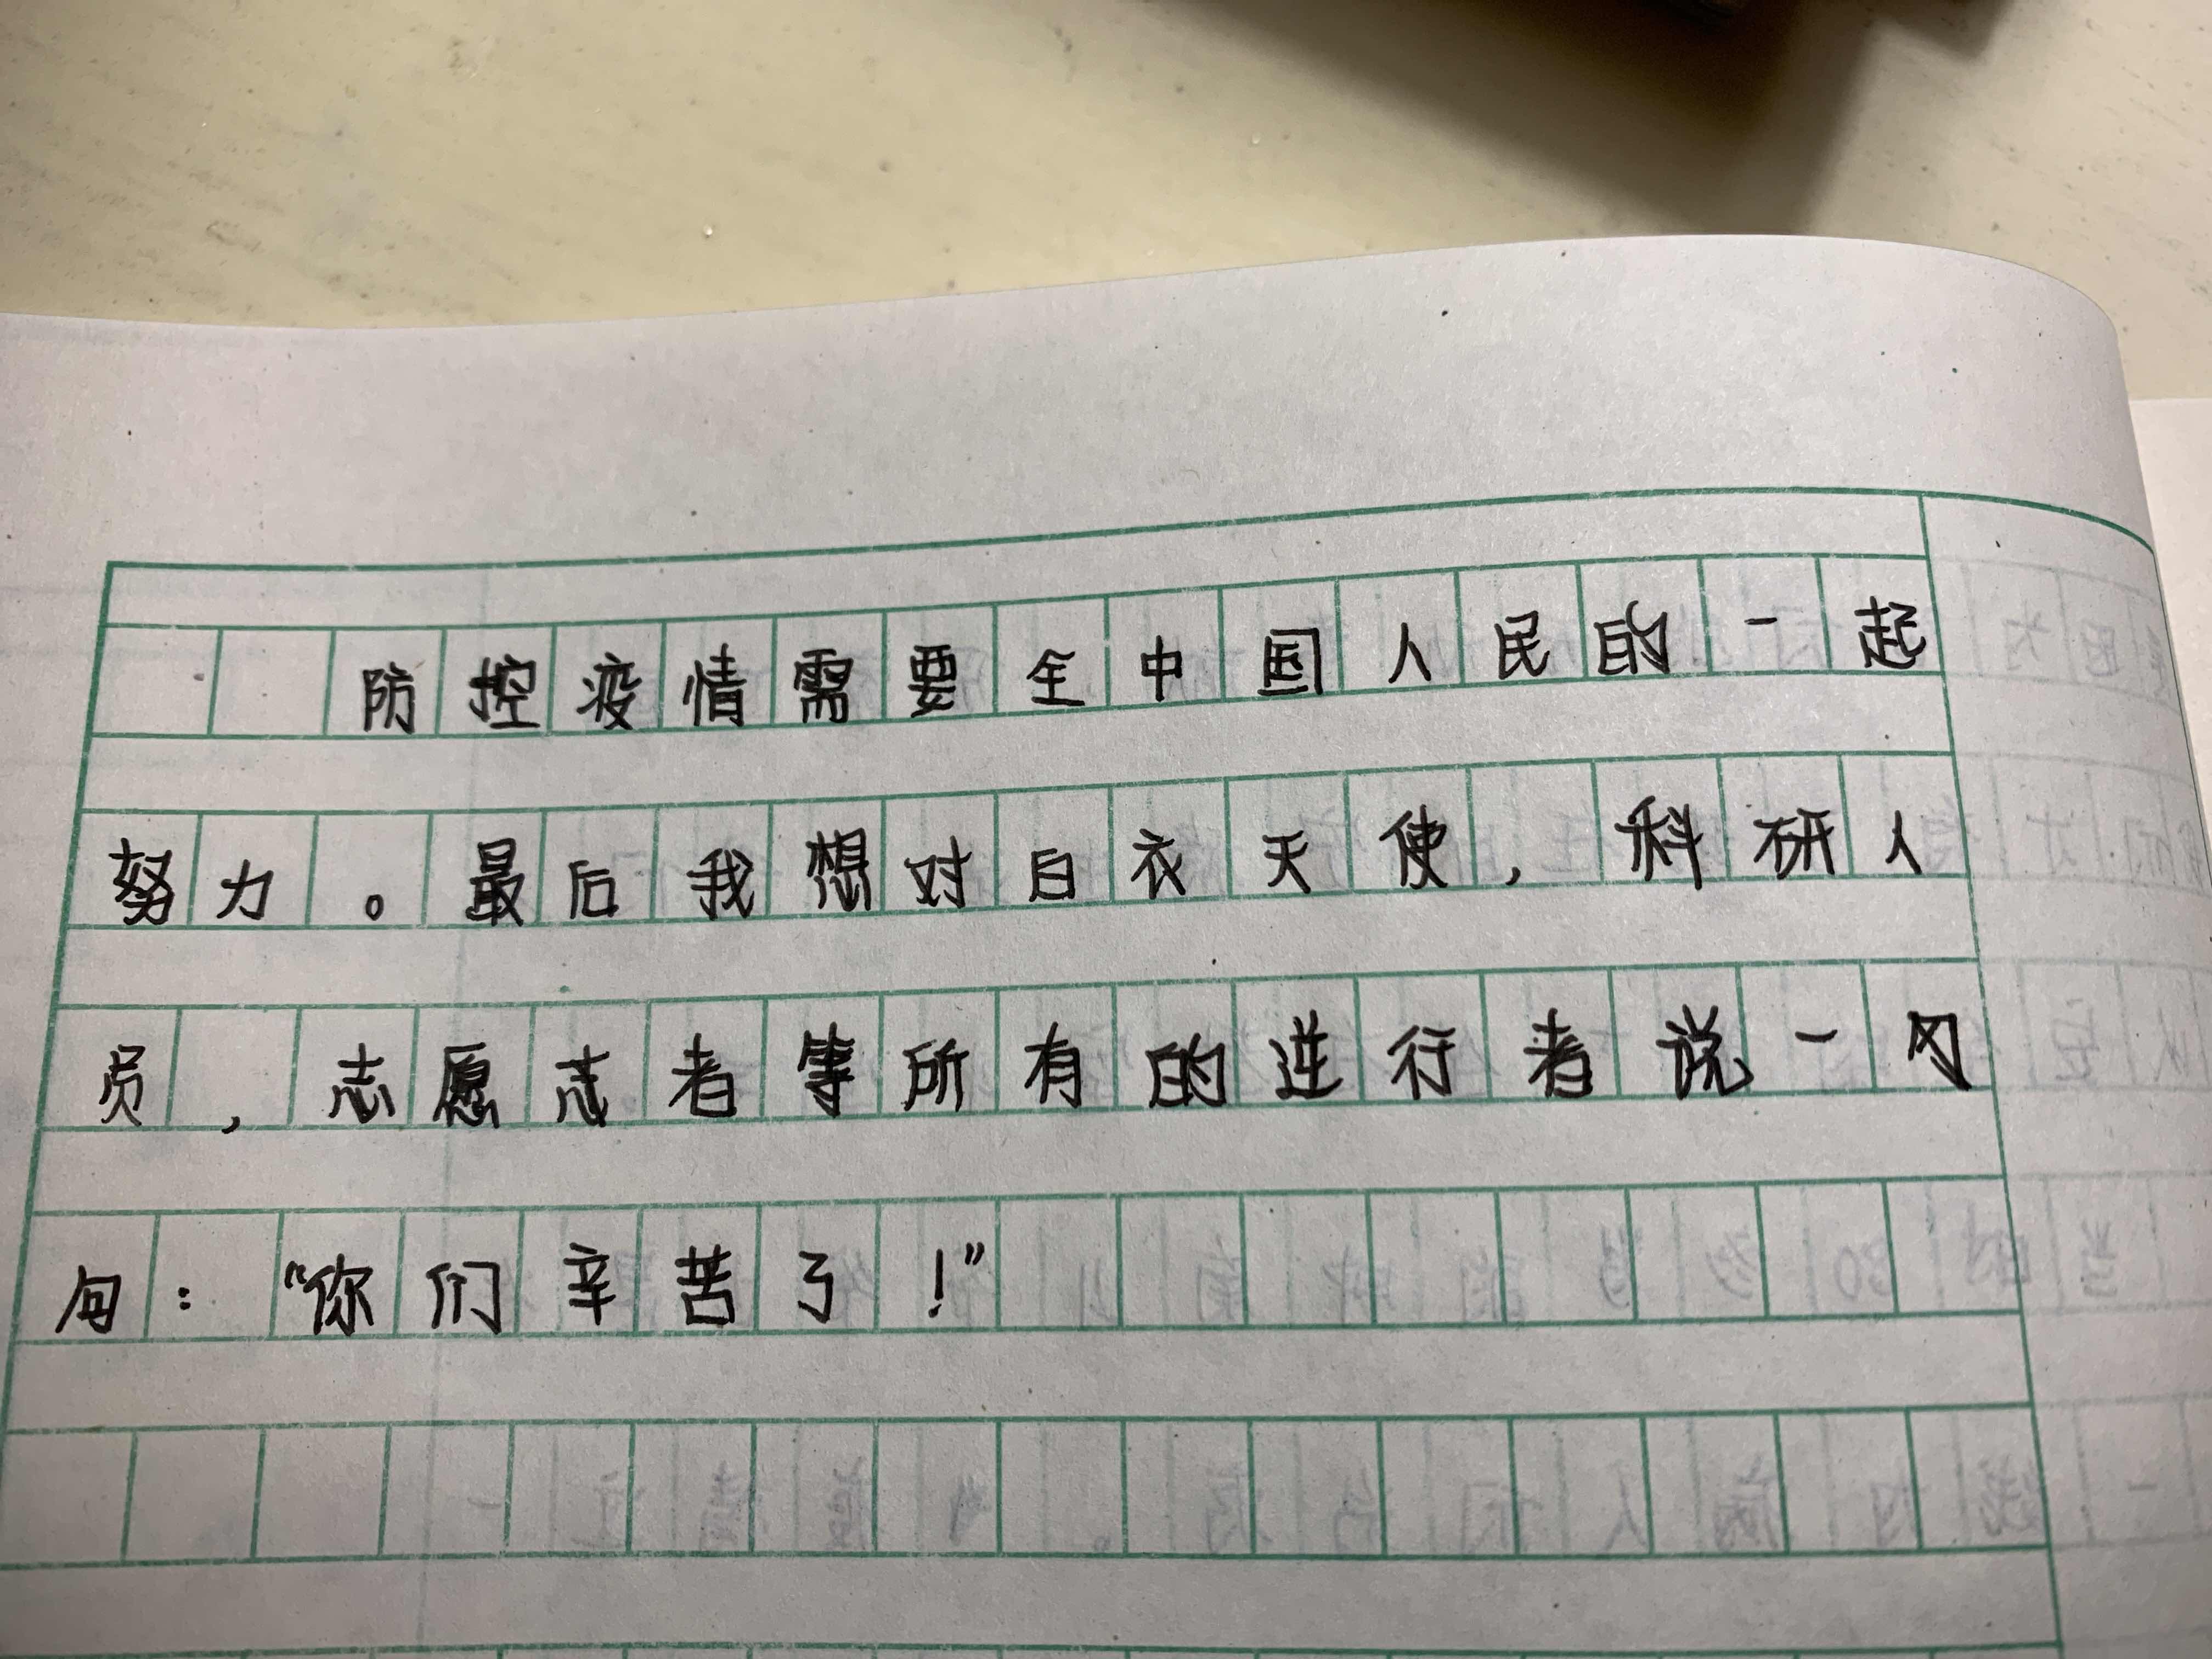 防控疫情需要全中国人民的一起
努力。最后我想对白衣天使，科研人
员，志愿志者等所有的逆行者说一
句：“你们辛苦了！”